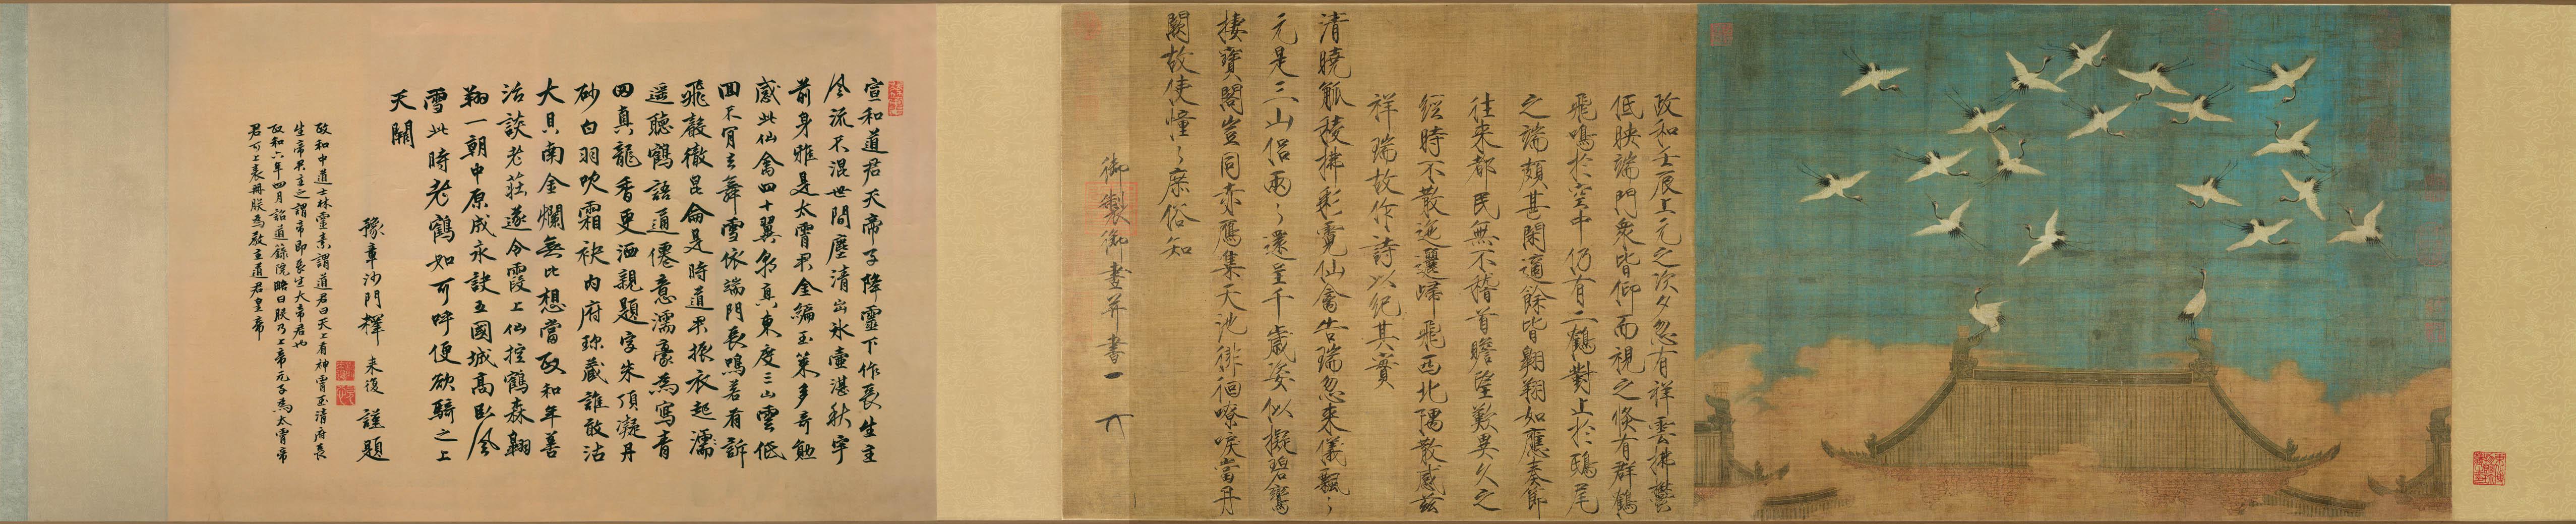 政和壬辰上元之次夕忽有祥雲拂鬱
低映端門衆皆仰而視之倏有群鶴
飛鳴於空中仍有二鶴對止於鴟尾
之端頗甚閑適餘皆翱翔如應奏節
往來都民無不稽首瞻望歎異久之
經時不散迤邐歸飛西北隅散感茲
祥瑞故作詩以紀其實
清曉觚稜拂彩霓仙禽告瑞忽來儀飄〻
元是三山侶兩〻還呈千歲姿似擬碧鸞
棲寶閣豈同赤鴈集天池徘徊嘹唳當丹
闕故使憧〻庶俗知
御製御畫并書
宣和道君天帝子降靈下作長生主
風流不混世間塵清出冰壺湛秋宇
前身雅是太霄君金編玉策多奇勳
感此仙禽四十翼朝真東度三山雲低
回不肯去舞雪依端門長鳴若有訴
飛聲徹昆侖是時道君振衣起濡
遥聽鶴語通僊意濡豪為寫青
田真龍香更洒親題字朱頂凝丹
砂白羽吹霜袂內府珍藏誰敢沽
大貝南金爛無比想當政和年善
治談老莊遂令霞上仙控鶴森翱
翔一朝中原成永訣五國城高臥風
雪此時老鶴如可呼便欲騎之上
天闕
豫章沙門釋 来復 謹題
政和中道士林靈素謂道君曰天上有神霄玉清府長
生帝君主之謂帝即長生大帝君也
政和六年四月詔道籙院略曰朕乃上帝元子為太霄帝
君可上表冊朕為教主道君皇帝